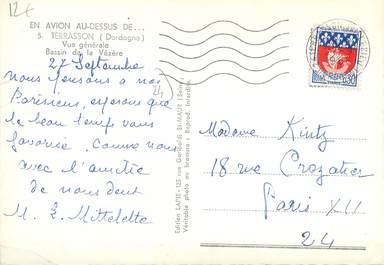 12€
EN AVION AU-DESSUS DE...
5. TERRASSON (Dordogne)
Vue générale
Bassin de la Vézère
27 Septembre
24
nous pensons a nos
Parisiens, esperons que
le beau temps vous
favorise. Comme nous
avec l'amitié
de nous deux
M. L. Mittelette
Edition LAPIE - 125 rue Garibaldi St-MAUR (Seine)
Véritable photo au bromure : Reprod. Interdite
Madame Kintz
18 rue Crozatier
Paris XII
24